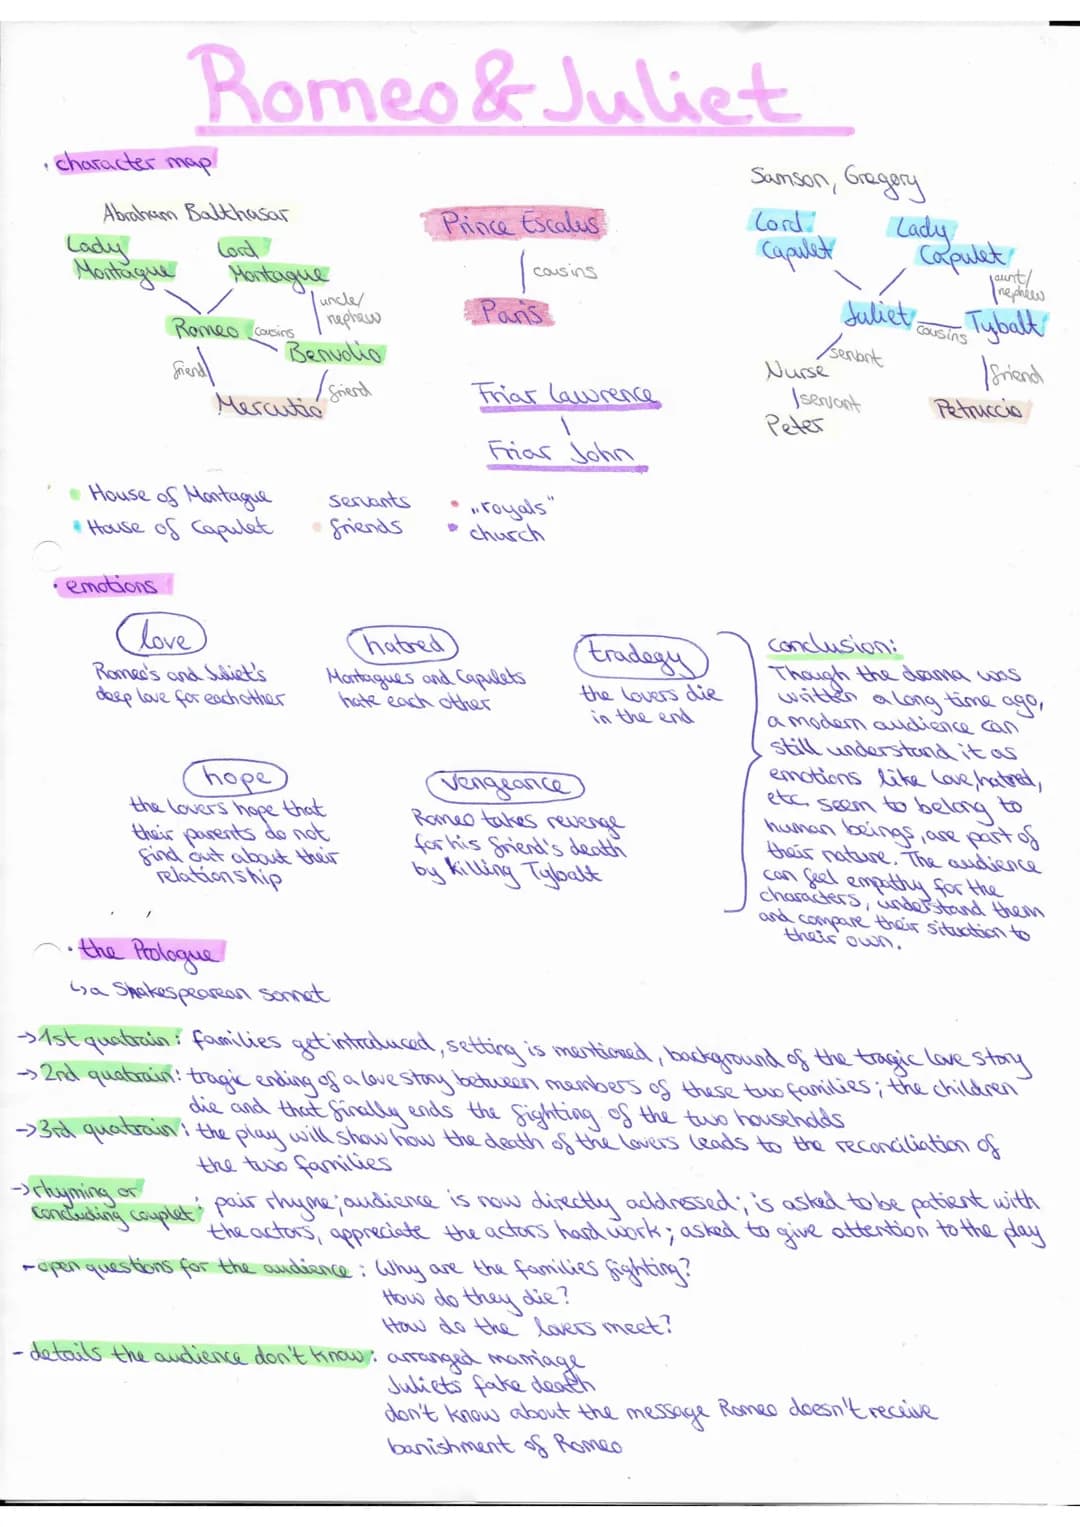 Romeo & Juliet
· character map
Samson, Gregory
Abraham Balthasar
Prince Escalus
Lord Capulet
Lady Capulet
Lady Montague
Lord Montague
cousins
aunt/nephew
uncle/nephew
Paris
Juliet
cousins
Tybalt
Romeo
cousins
Benvolio
servant
friend
friend
friend
Nurse
Mercutio
Friar Lawrence
servant
Petruccio
Peter
Friar John
• House of Montague
servants
• „royals"
• House of Capulet
• friends
• church
· emotions
love
Romeo's and Juliet's
deep love for eachother
hatred
Montagues and Capulets
hate each other
tradegy
the lovers die
in the end
hope
the lovers hope that
their parents do not
find out about their
relationship
vengeance
Romeo takes revenge
for his friend's death
by killing Tybalt
conclusion:
Though the drama was
written a long time ago,
a modern audience can
still understand it as
emotions like love, hatred,
etc. seem to belong to
human beings, are part of
their nature. The audience
can feel empathy for the
characters, understand them
and compare their situation to
their own.
· the Prologue
↳ a Shakespearean sonnet
→ 1st quatrain: families get introduced, setting is mentioned, background of the tragic love story
→ 2nd quatrain: tragic ending of a love story between members of these two families; the children
die and that finally ends the fighting of the two households
→ 3rd quatrain: the play will show how the death of the lovers leads to the reconciliation of
the two families
→ rhyming or
concluding couplet: pair rhyme; audience is now directly addressed; is asked to be patient with
the actors, appreciate the actors hard work; asked to give attention to the play
- open questions for the audience: Why are the families fighting?
How do they die?
How do the lovers meet?
- details the audience don't know: arranged marriage
Juliets fake death
don't know about the message Romeo doesn't receive
banishment of Romeo